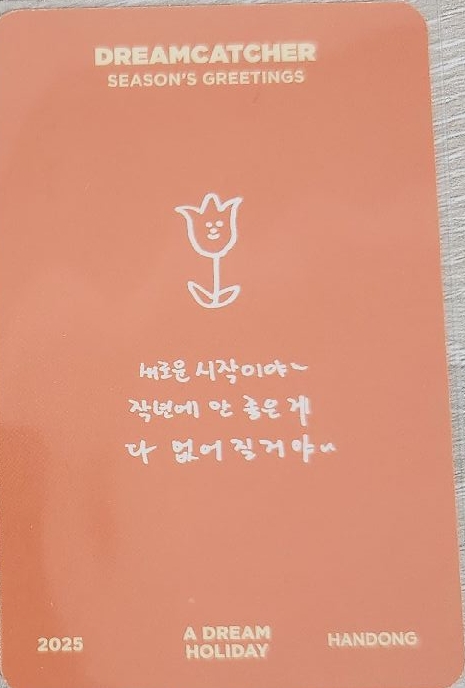 DREAMCATCHER
SEASON'S GREETINGS
새로운 시작이야~
작년에 안 좋은 게
다 없어 질거야~
2025
A DREAM
HOLIDAY
HANDONG